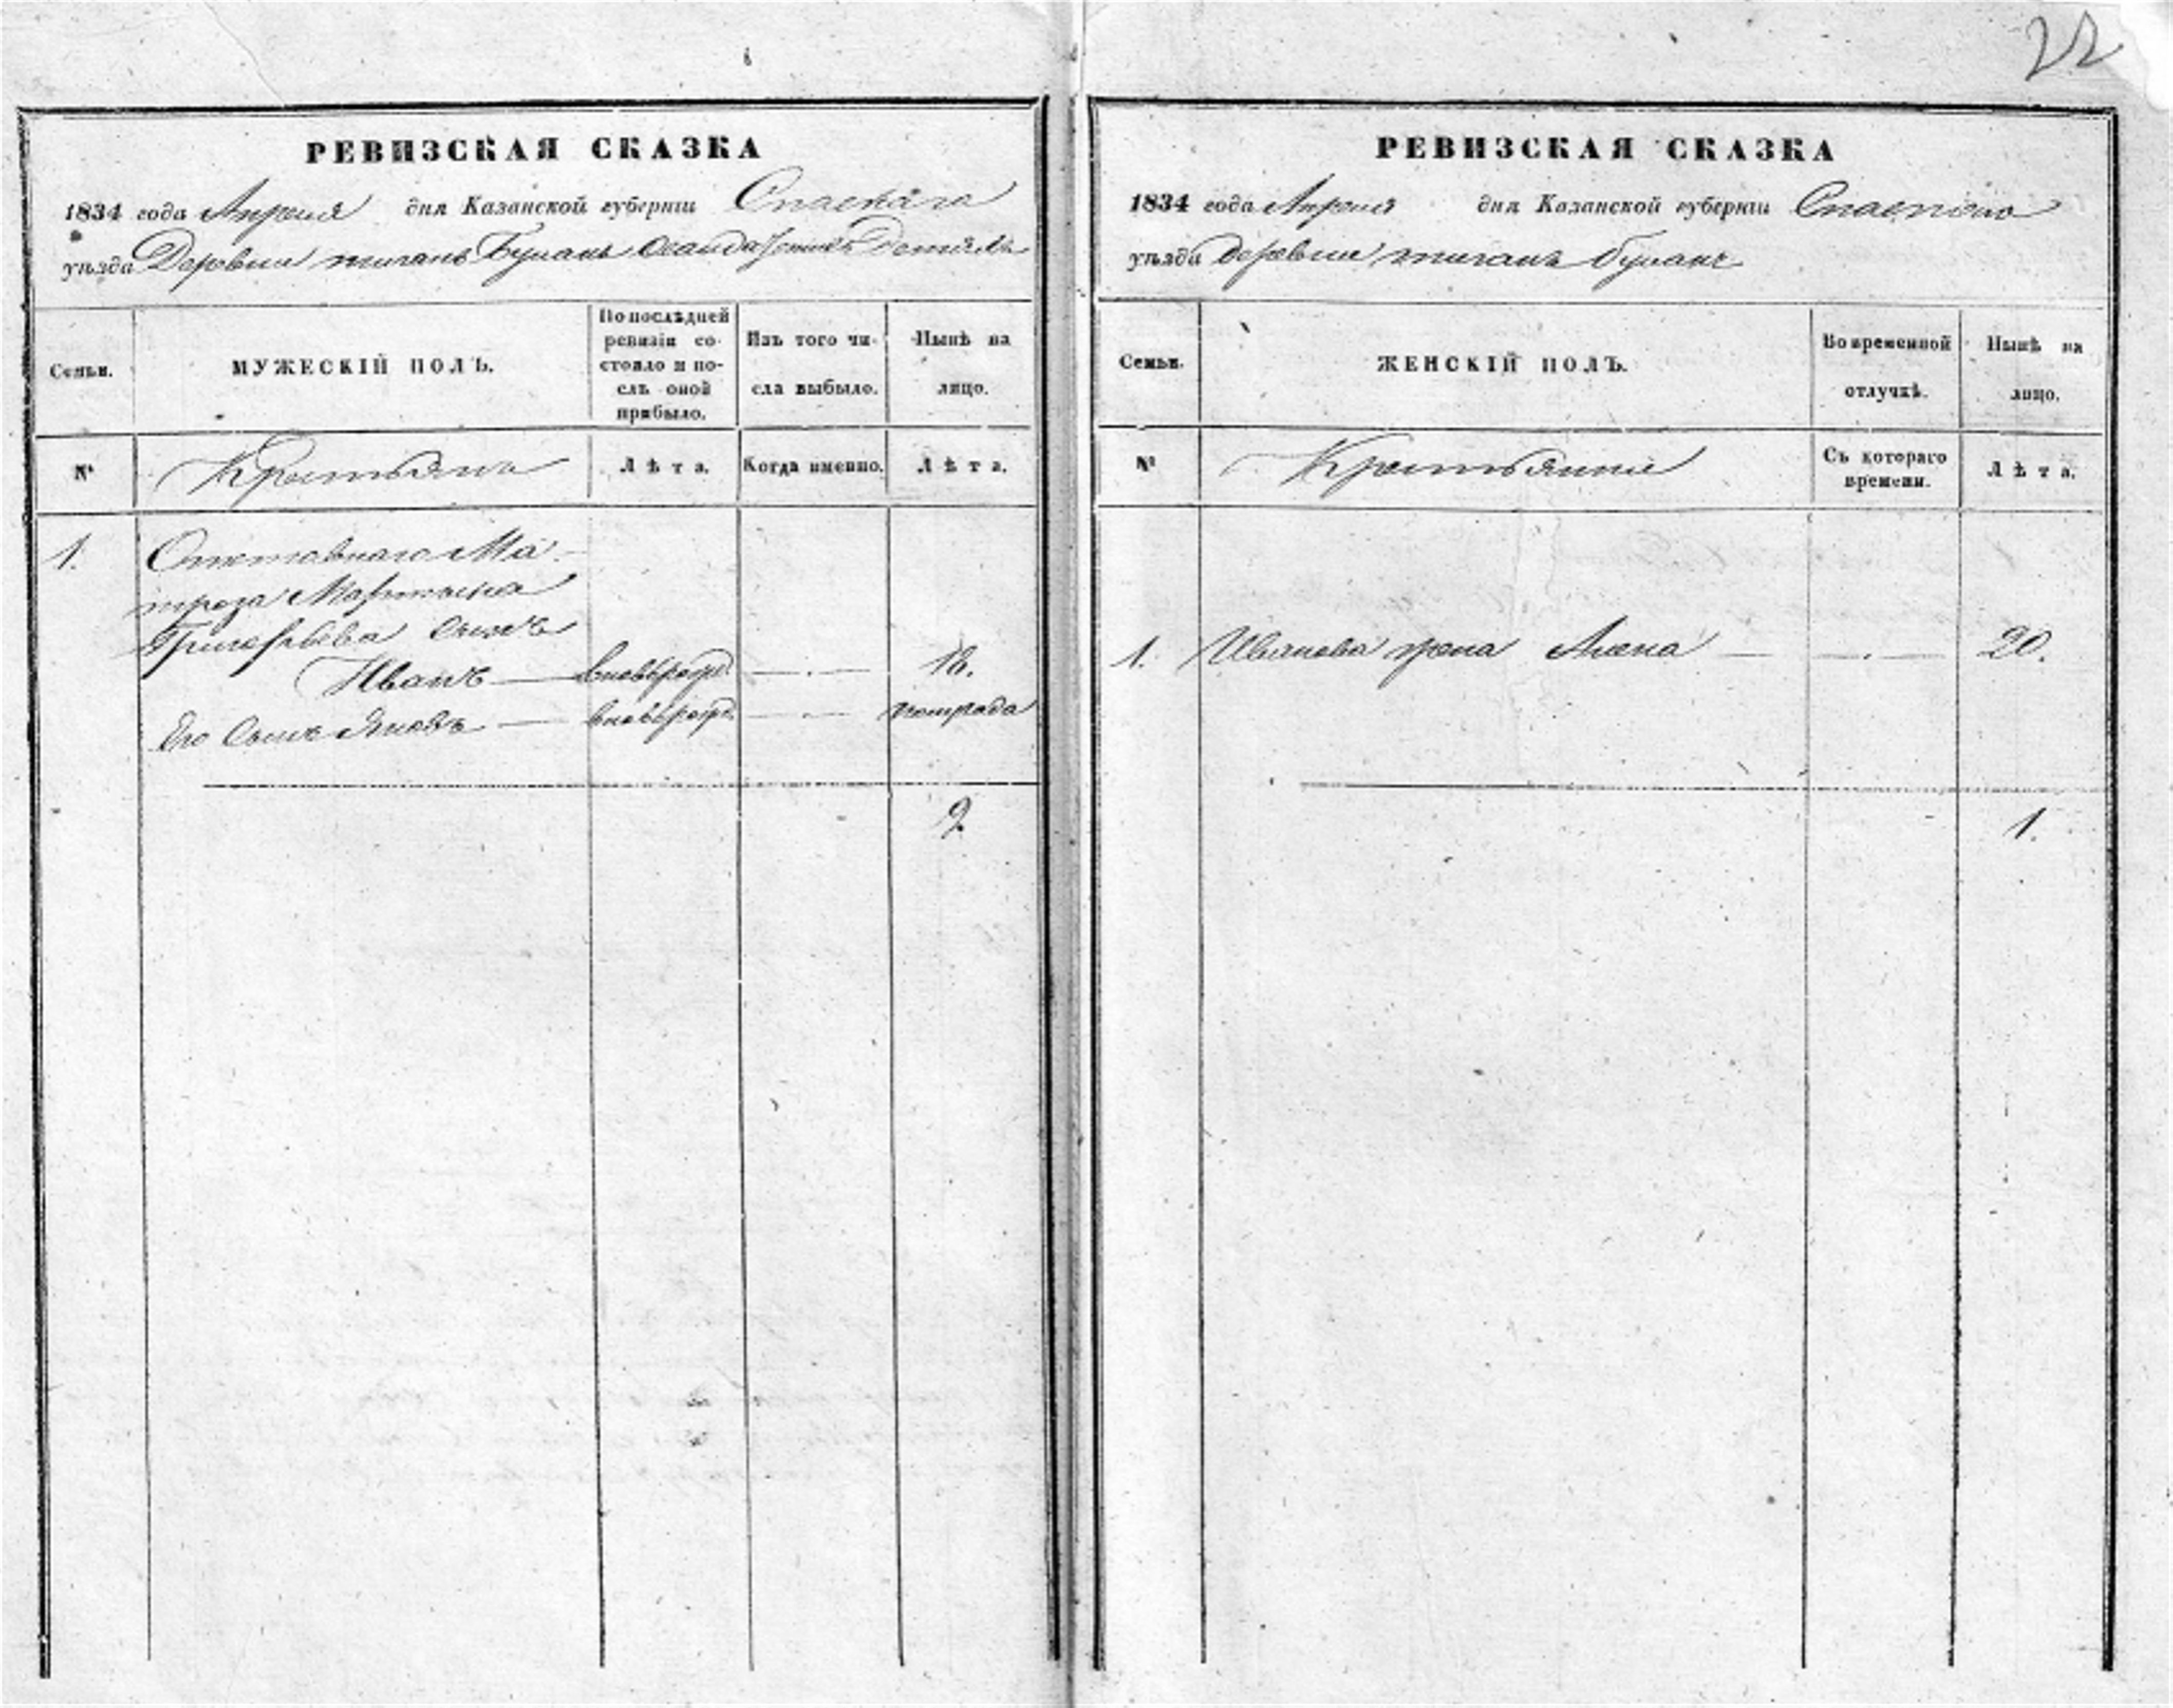 22
РЕВИЗСКАЯ СКАЗКА
1834 года Апреля дня Казанской губернiи Спаскаго
уѣзда Деревни тиганъ Буланъ
Семьи.
МУЖЕСКІЙ ПОЛЪ.
По послѣдней
ревизіи со-
стояло и по-
слѣ оной
прибыло.
Изъ того чи-
сла выбыло.
Нынѣ на
лицо.
№
Крестьянъ
Лѣта.
Когда именно.
Лѣта.
1.
Отставнаго Ма-
троза Мартына
Григорьева сынъ
Иванъ — вновьрожд. — 18.
Его Сынъ Яковъ — вновьрожд. — полгода
2
РЕВИЗСКАЯ СКАЗКА
1834 года Апреля дня Казанской губернiи Спаскаго
уѣзда деревни тиганъ буланъ
Семьи.
ЖЕНСКІЙ ПОЛЪ.
Во временной
отлучкѣ.
Нынѣ на
лицо.
№
Крестьянки
Съ котораго
времени.
Лѣта.
1. Иванова жена Алена — — 20.
1.